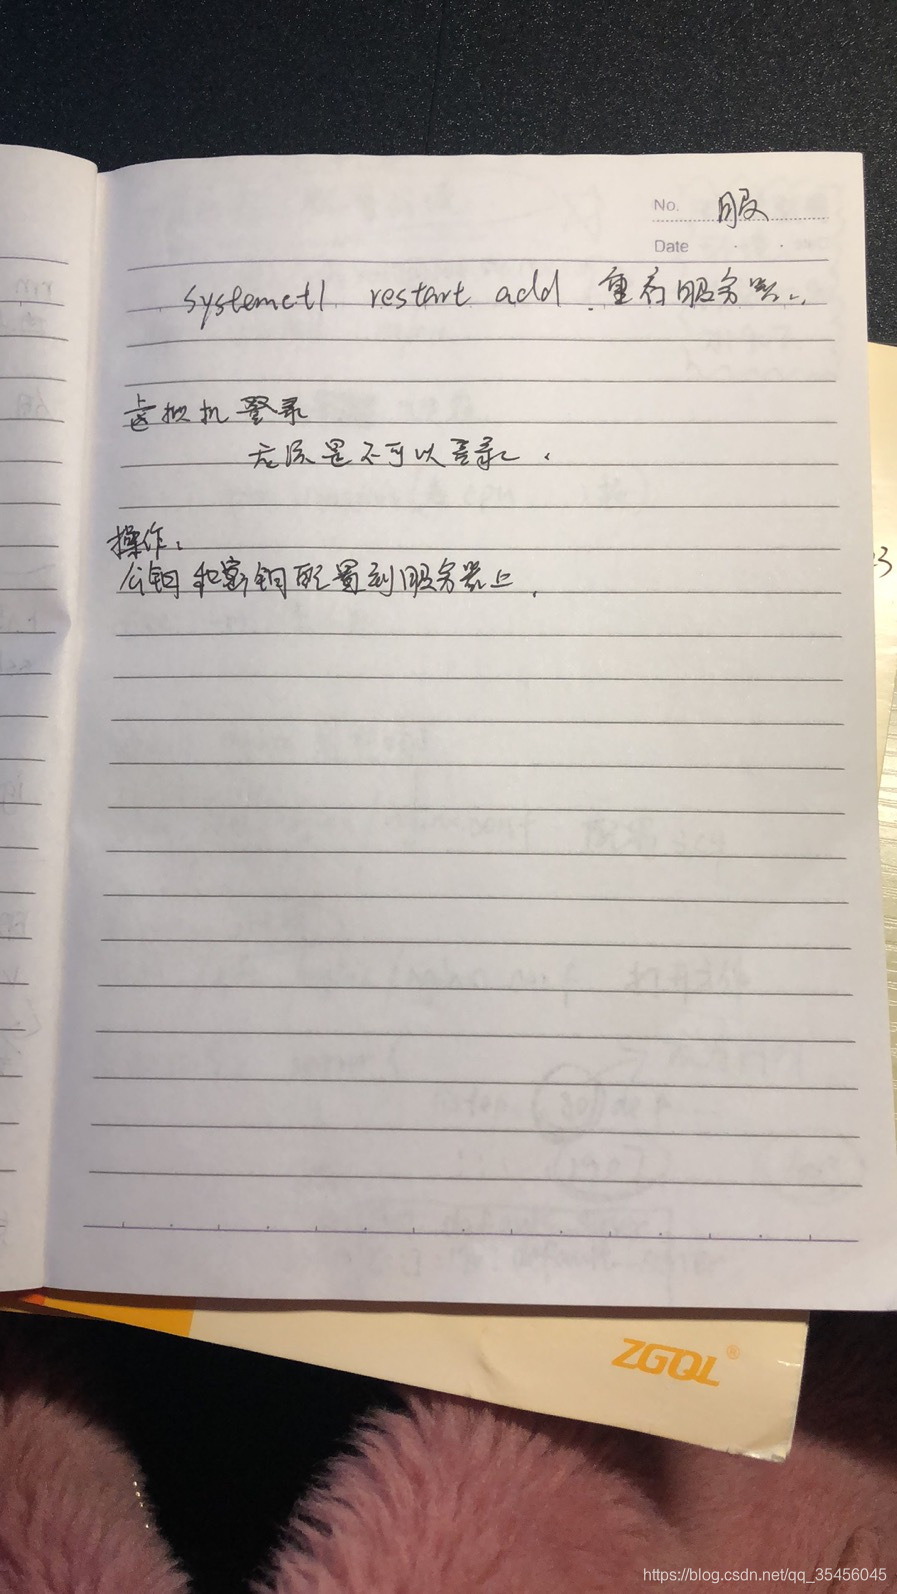 No. 服
Date
systemctl restart add 重启服务器..
虚拟机登录
应该是不可以登录.
操作:
公钥和密钥配置到服务器上.
23
ZGQL®
https://blog.csdn.net/qq_35456045